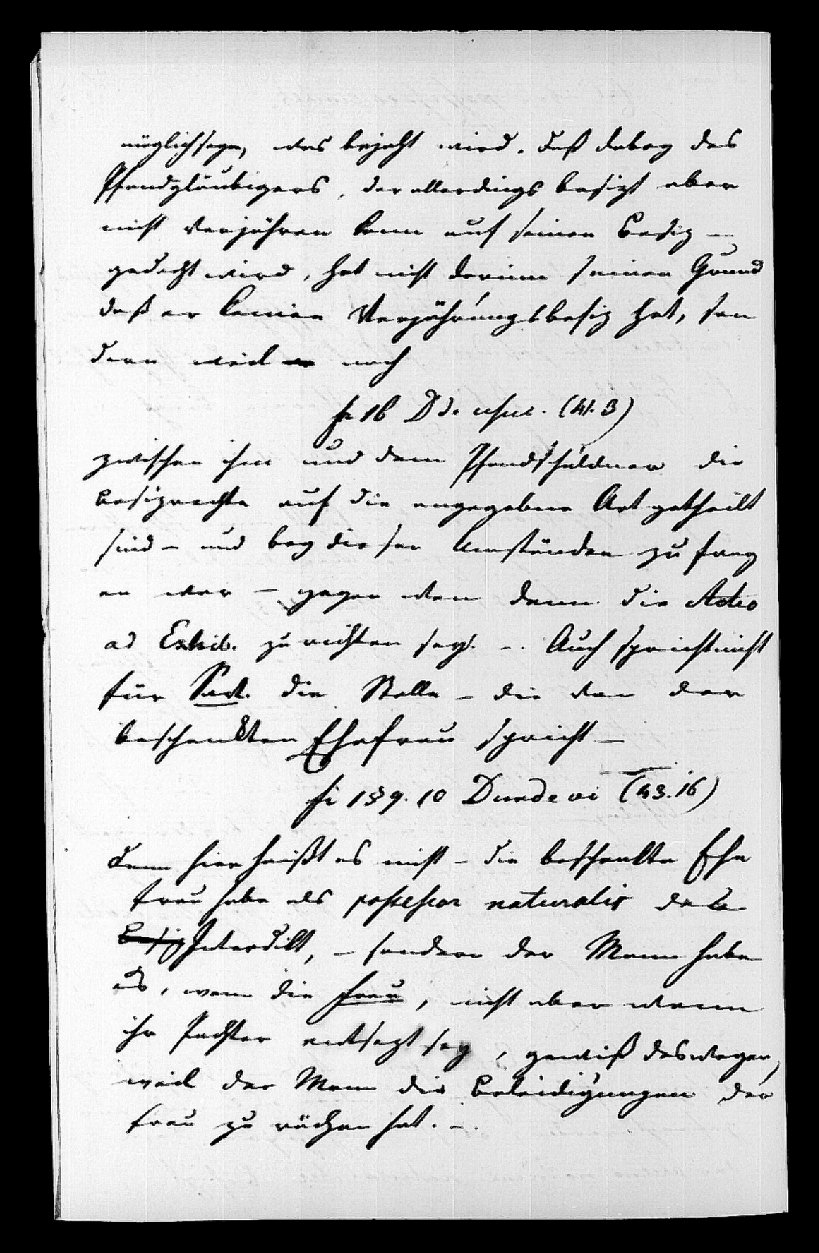 möglich sey, das bejaht wird. Daß dabey des
Pfandgläubigers, der allerdings besizt aber
nicht verjähren kann auf seinen Besiz —
gedacht wird, hat nicht darinn seinen Grund
daß er keinen Verjährungsbesiz hat, son
dern weil nach
fr 16 D de usuc. (41.3)
zwischen ihm und dem Pfandschuldner die
Besizrechte auf die angegebene Art getheilt
sind — und bey diesen Umständen zu frag
en war — gegen wen denn die Actio
ad Exhib. zu richten sey. —. Auch spricht nicht
für Sav. die Stelle — die von der
beschenkten Ehefrau spricht —
fr 1 § 9. 10 D unde vi (43.16)
denn hier heißt es nicht — die beschenkte Ehe
frau habe als possessor naturalis das
Interdikt, — sondern der Mann habe
es, wenn die Frau, nicht aber wenn
ihr Pachter entsezt sey, gewiß deswegen,
weil der Mann die Beleidigungen der
Frau zu rächen hat. —.